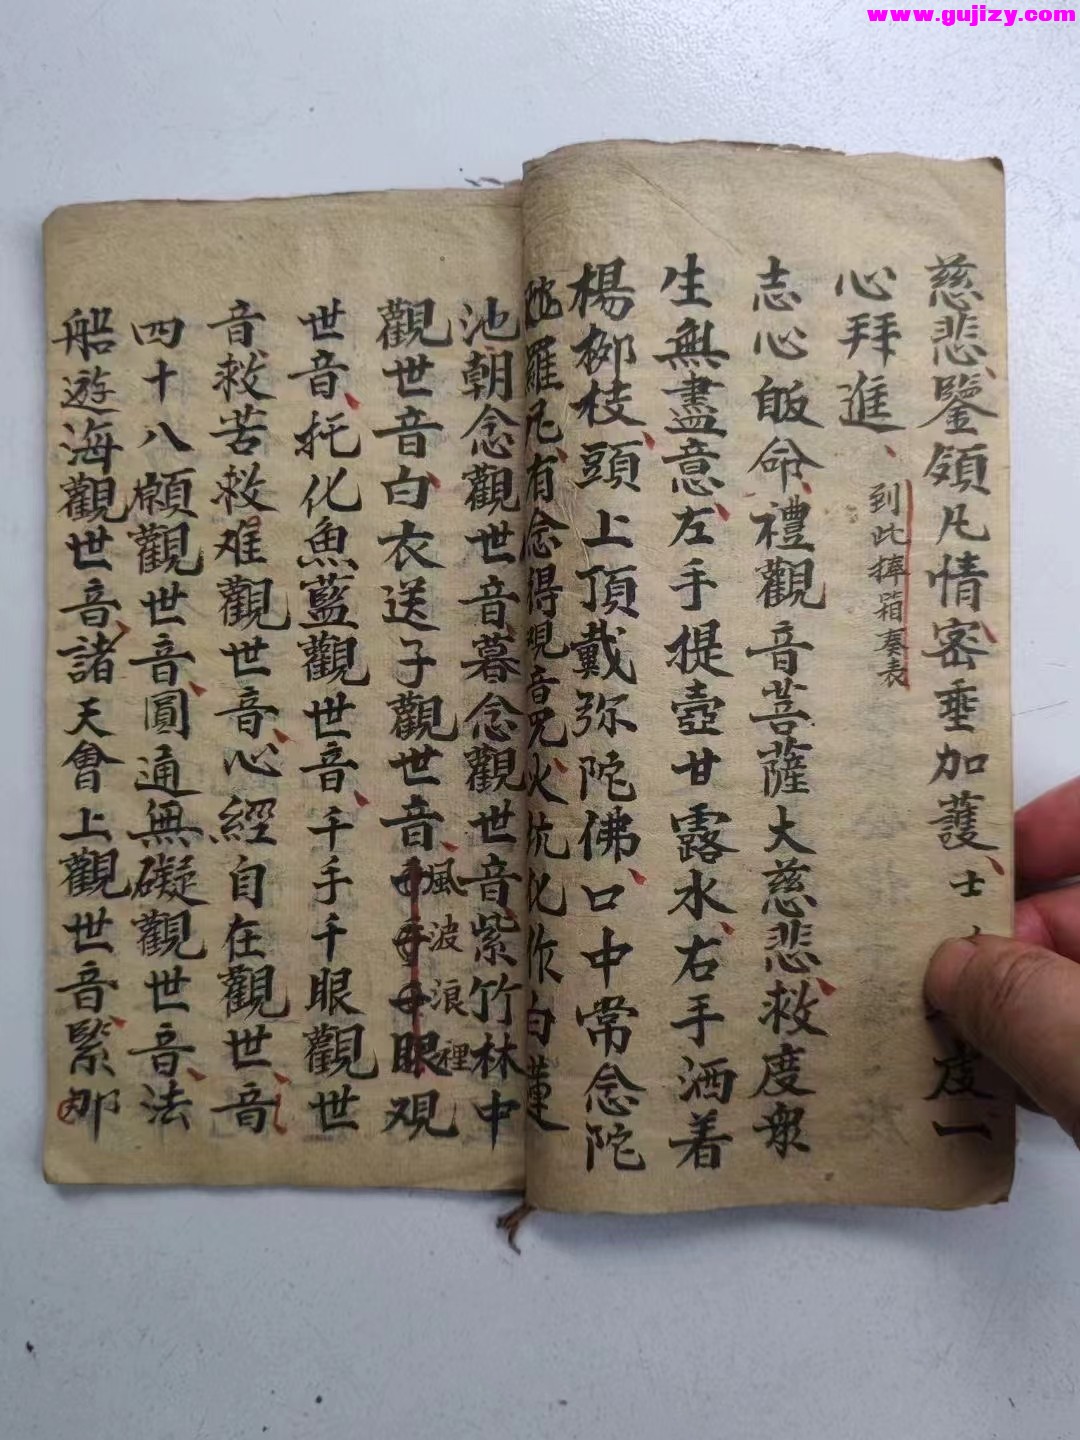 www.gujizy.com
慈悲鑒領凡情密垂加護士度一
心拜進
到此捧箱奏表
志心皈命禮觀音菩薩大慈悲救度衆
生無盡意左手提壺甘露水右手洒着
楊柳枝頭上頂戴弥陀佛口中常念陀
羅尼有念得观音咒火坑化作白蓮
池朝念觀世音暮念觀世音紫竹林中
觀世音白衣送子觀世音眼观
風波浪裡
世音托化魚藍觀世音千手千眼觀世
音救苦救难觀世音心經自在觀世音
四十八願觀世音圓通無礙觀世音法
船遊海觀世音諸天會上觀世音緊那